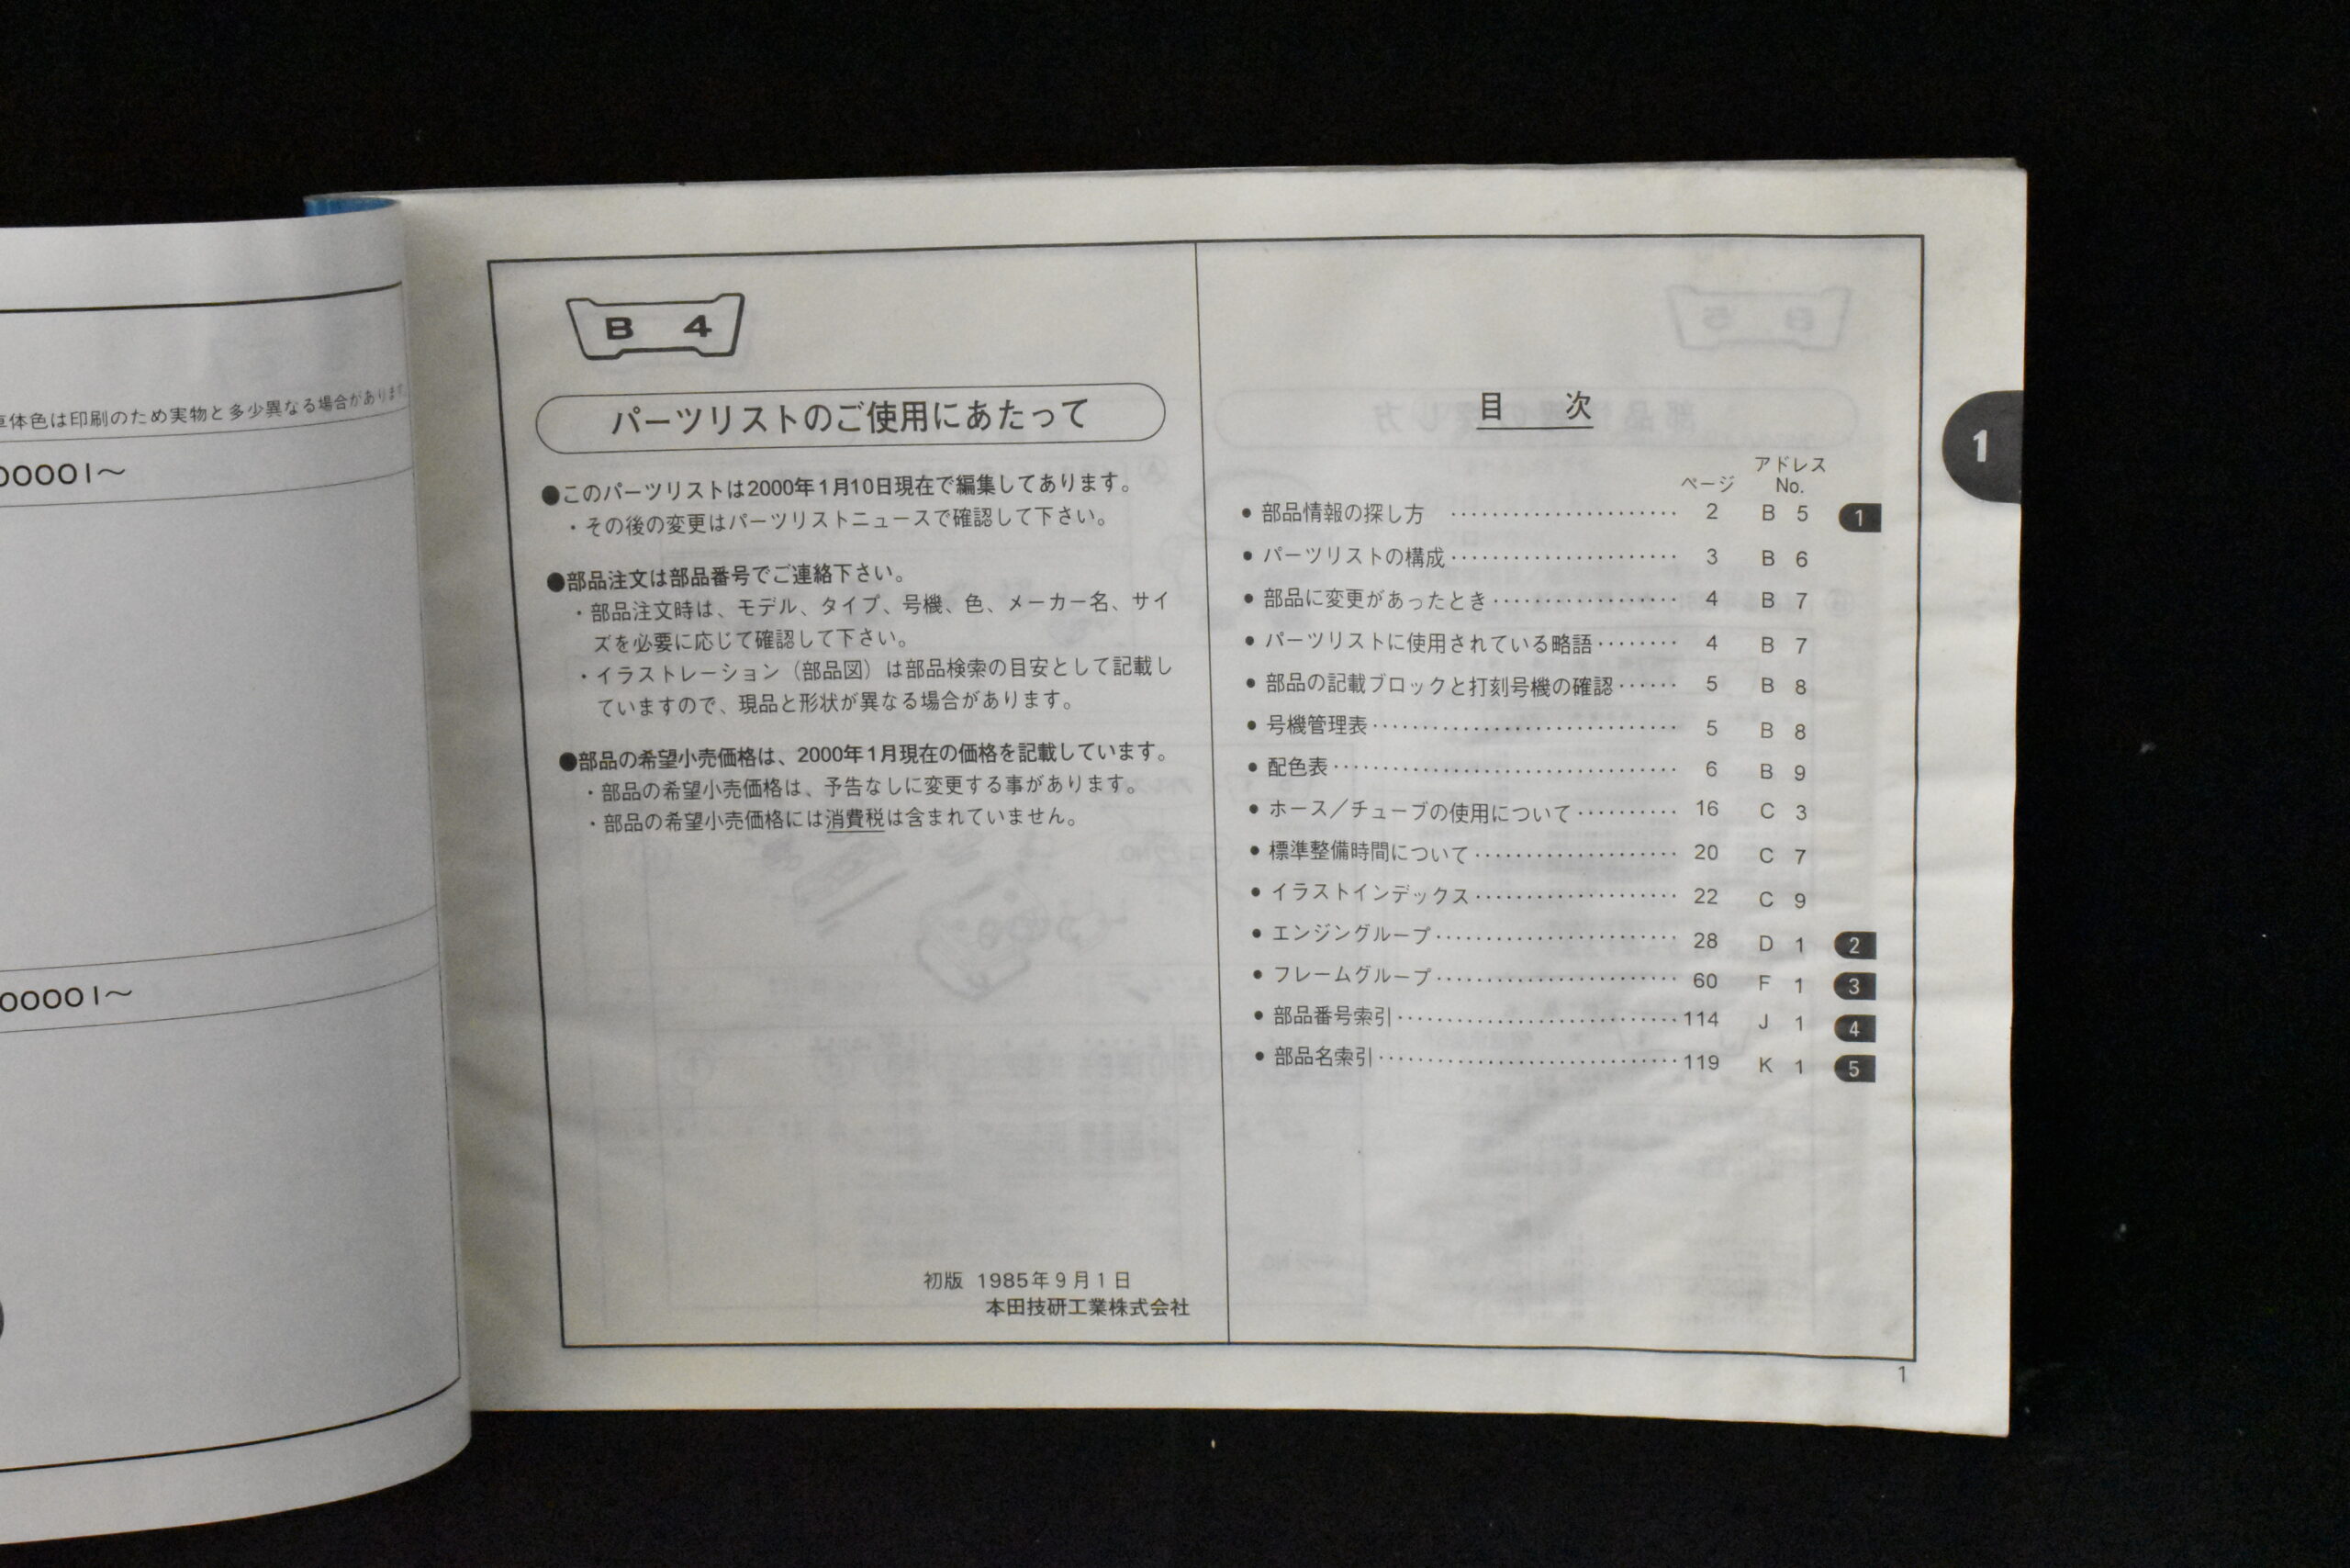 車体色は印刷のため実物と多少異なる場合があります。
00001〜
00001〜
B 4
パーツリストのご使用にあたって
●このパーツリストは2000年1月10日現在で編集してあります。
・その後の変更はパーツリストニュースで確認して下さい。
●部品注文は部品番号でご連絡下さい。
・部品注文時は、モデル、タイプ、号機、色、メーカー名、サイ
ズを必要に応じて確認して下さい。
・イラストレーション（部品図）は部品検索の目安として記載し
ていますので、現品と形状が異なる場合があります。
●部品の希望小売価格は、2000年1月現在の価格を記載しています。
・部品の希望小売価格は、予告なしに変更する事があります。
・部品の希望小売価格には消費税は含まれていません。
初版 1985年9月1日
本田技研工業株式会社
目 次
ページ アドレス No.
● 部品情報の探し方 …… 2 B 5 1
● パーツリストの構成 …… 3 B 6
● 部品に変更があったとき …… 4 B 7
● パーツリストに使用されている略語 …… 4 B 7
● 部品の記載ブロックと打刻号機の確認 …… 5 B 8
● 号機管理表 …… 5 B 8
● 配色表 …… 6 B 9
● ホース／チューブの使用について …… 16 C 3
● 標準整備時間について …… 20 C 7
● イラストインデックス …… 22 C 9
● エンジングループ …… 28 D 1 2
● フレームグループ …… 60 F 1 3
● 部品番号索引 …… 114 J 1 4
● 部品名索引 …… 119 K 1 5
1
1